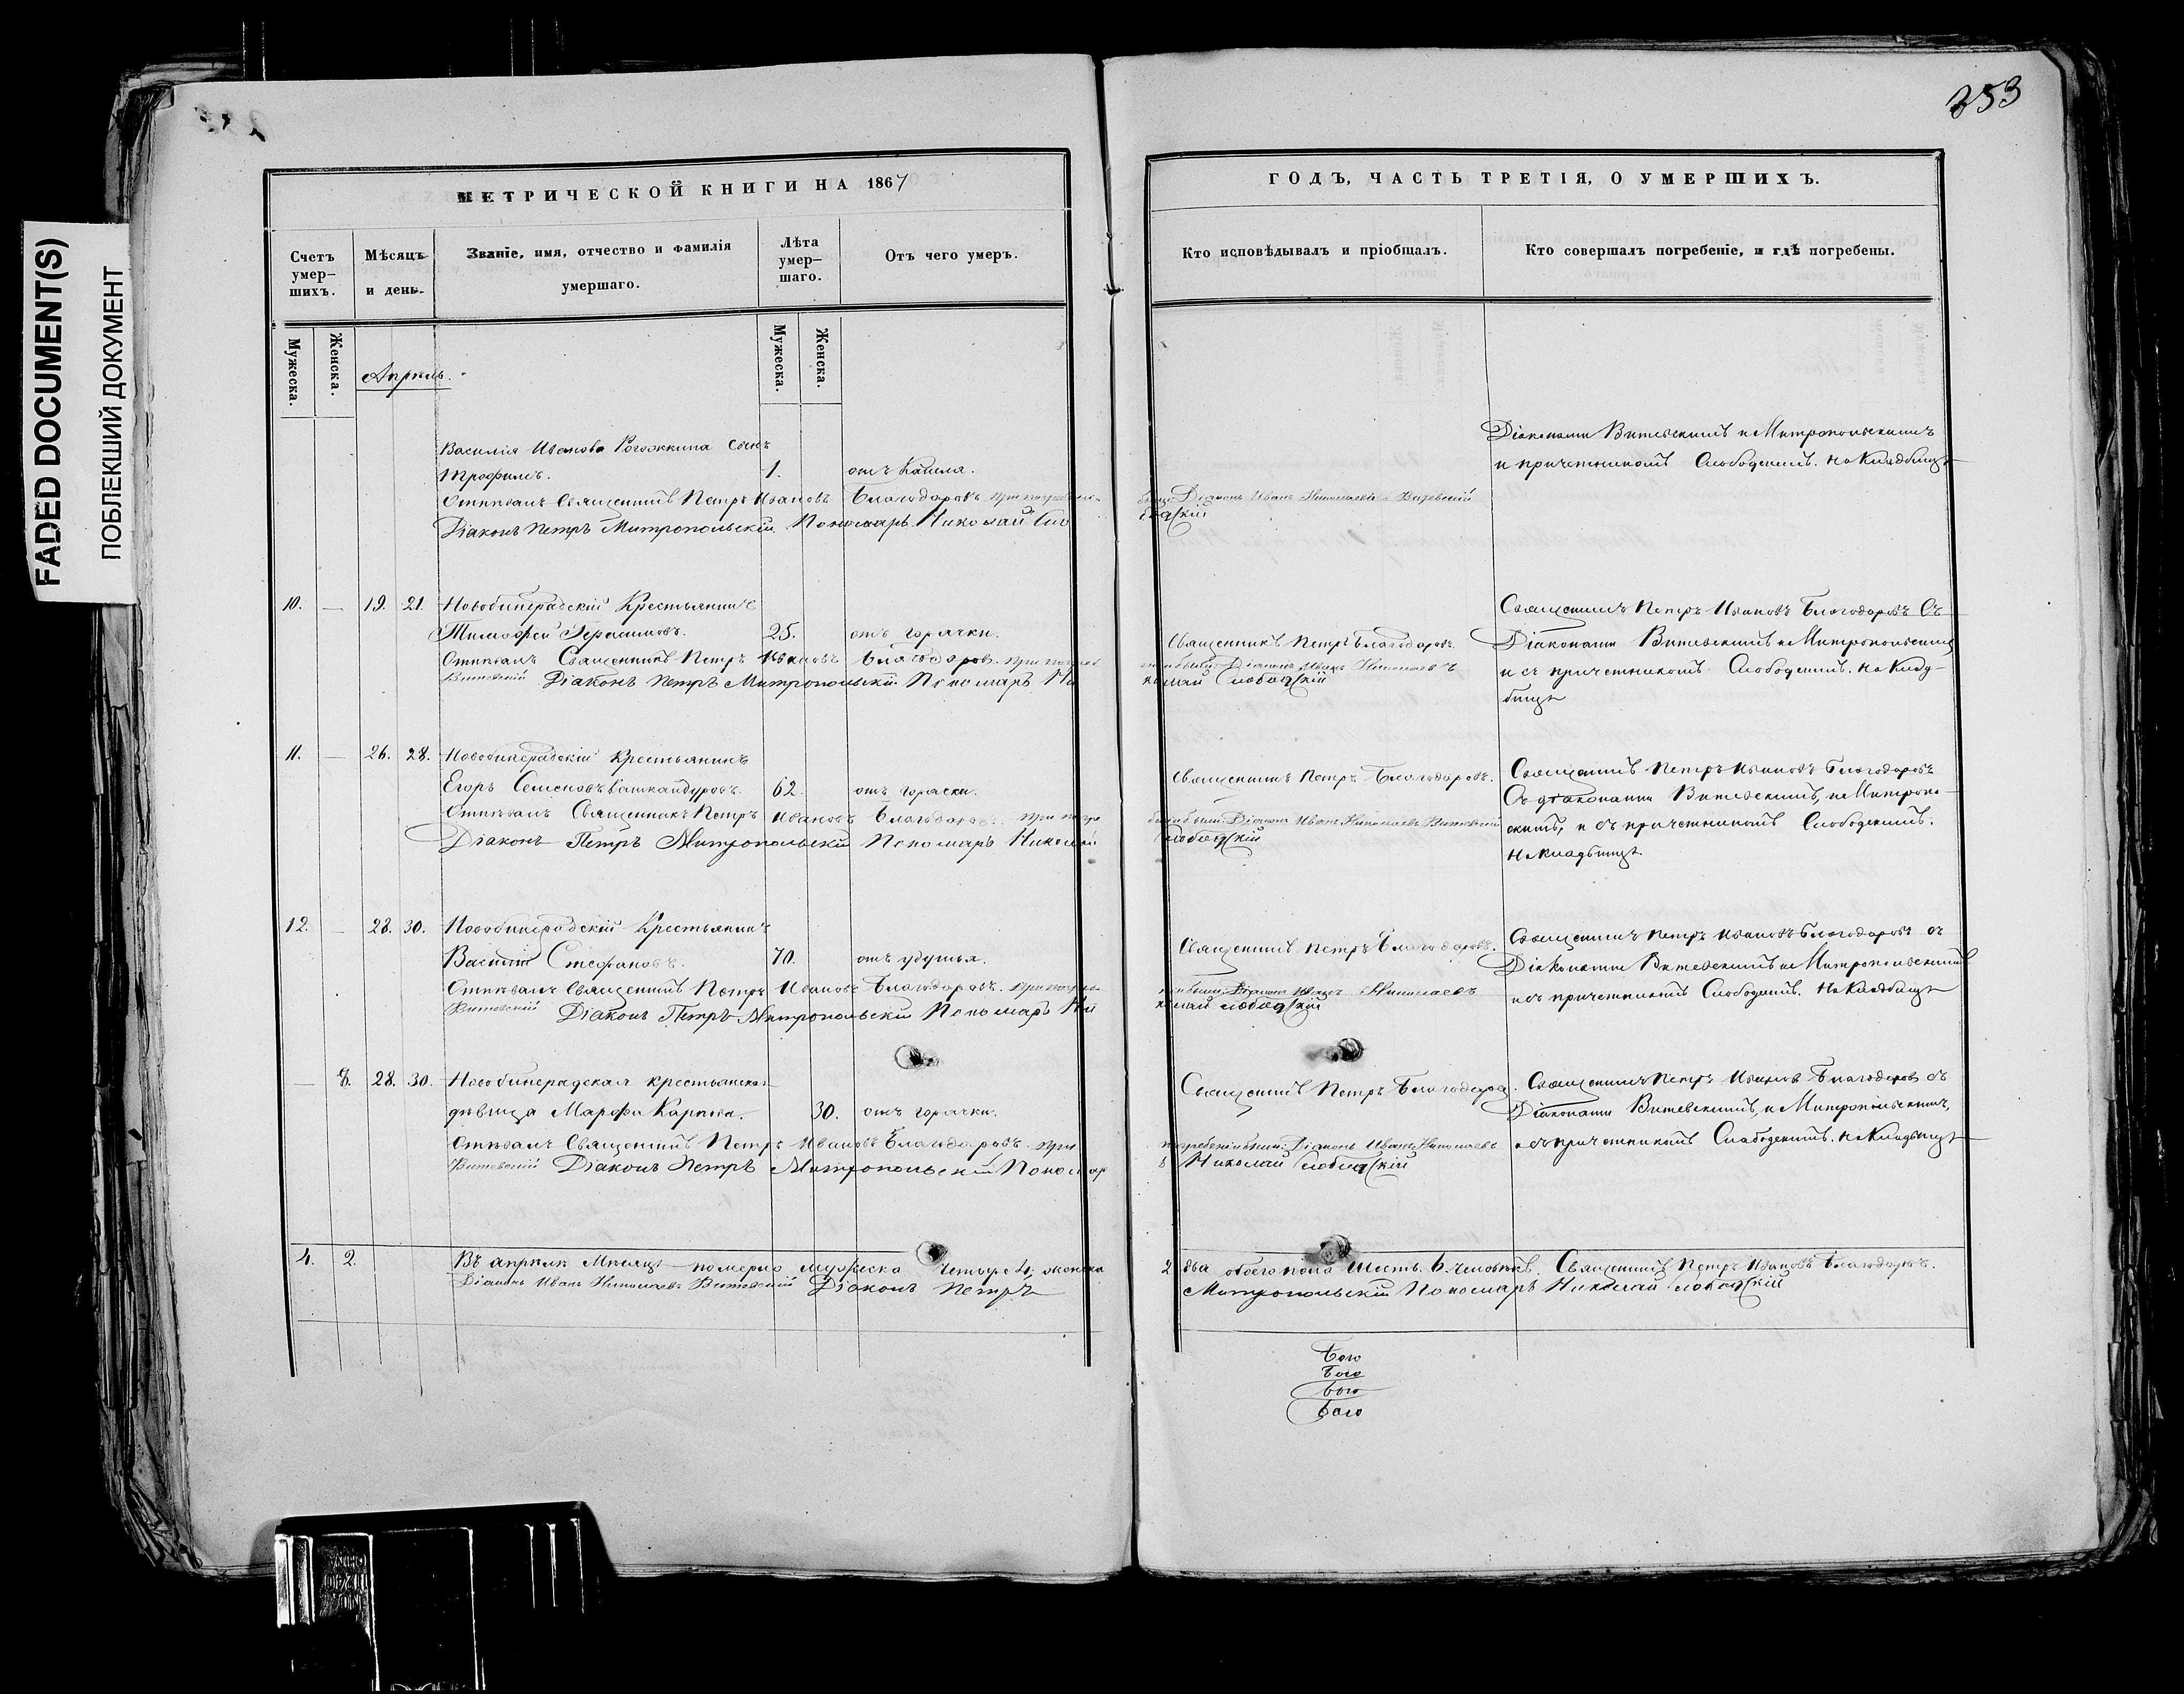 FADED DOCUMENT(S)
ПОБЛЕКШИЙ ДОКУМЕНТ
253
МЕТРИЧЕСКОЙ КНИГИ НА 1867
Счетъ умер-шихъ.
Мужеска.
Женска.
Мѣсяцъ и день.
Званіе, имя, отчество и фамилія умершаго.
Лѣта умер-шаго.
Мужеска.
Женска.
Отъ чего умеръ.
Апрѣль.
Василія Иванова Рогожкина сынъ
Трофимъ. 1. отъ кашля.
Отпѣвалъ Священникъ Петръ Ивановъ Благодаровъ
Діаконъ Петръ Митропольскій Пономарь Николай Сло
10. — 19. 21. Новобинарадскій Крестьянинъ
Тимофей Герасимовъ. 25. отъ горячки.
Отпѣвалъ Священникъ Петръ Ивановъ Благодаровъ
Витевскій Діаконъ Петръ Митропольскій Пономарь Ни
11. — 26. 28. Новобинарадскій Крестьянинъ
Егоръ Семеновъ 62. отъ горячки.
Отпѣвалъ Священникъ Петръ Ивановъ Благодаровъ
Діаконъ Петръ Митропольскій Пономарь Николай
12. — 28. 30. Новобинарадскій Крестьянинъ
Василій Стефановъ. 70. отъ удушья.
Отпѣвалъ Священникъ Петръ Ивановъ Благодаровъ.
Витевскій Діаконъ Петръ Митропольскій Пономарь Ни
— 28. 30. Новобинарадская крестьянская
дѣвица Марфа Карпова. 30. отъ горячки.
Отпѣвалъ Священникъ Петръ Ивановъ Благодаровъ. при
Витевскій Діаконъ Петръ Митропольскій Пономар
4. 2. Въ апрѣлѣ Мѣсяцѣ померло мужеска четыре 4, женска
Діаконъ Иванъ Николаевъ Витевскій Діаконъ Петръ
ГОДЪ, ЧАСТЬ ТРЕТІЯ, О УМЕРШИХЪ.
Кто исповѣдывалъ и пріобщалъ.
Кто совершалъ погребеніе, и гдѣ погребены.
Діаконами Витевскимъ и Митропольскимъ
и причетникомъ Слободскимъ. на Кладбищѣ
Діаконъ Иванъ Николаевъ Витевскій
Священникъ Петръ Ивановъ Благодаровъ Съ
Священникъ Петръ Благодаровъ.
Діаконами Витевскимъ и Митропольскимъ
Діаконъ Иванъ Николаевъ
и съ причетникомъ Слободскимъ. на Клад-
колай Слободскій
бищѣ
Священникъ Петръ Благодаровъ.
Священникъ Петръ Ивановъ Благодаровъ
Съ діаконами Витевскимъ, и Митропо-
Діаконъ Иванъ Николаевъ Витевскій
скимъ, и съ причетникомъ Слободскимъ.
Слободскій
на кладбищѣ.
Священникъ Петръ Благодаровъ.
Священникъ Петръ Ивановъ Благодаровъ съ
Діаконами Витевскимъ и Митропольскимъ
Діаконъ Иванъ Николаевъ
и съ причетникомъ Слободскимъ. На Кладбищѣ
колай Слободскій
Священникъ Петръ Благодаровъ.
Священникъ Петръ Ивановъ Благодаровъ съ
Діаконами Витевскимъ, и Митропольскимъ,
погребеніи былъ Діаконъ Иванъ Николаевъ
и съ причетникомъ Слободскимъ. на Кладбищѣ
ь Николай Слободскій
2 два обоего пола шесть. 6. человѣкъ. Священникъ Петръ Ивановъ Благодаровъ.
Митропольскій Пономарь Николай Слободскій